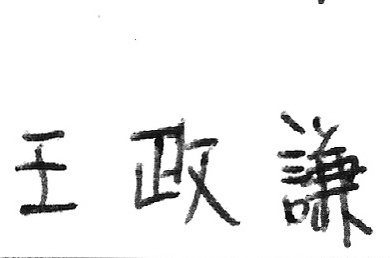 王政謙